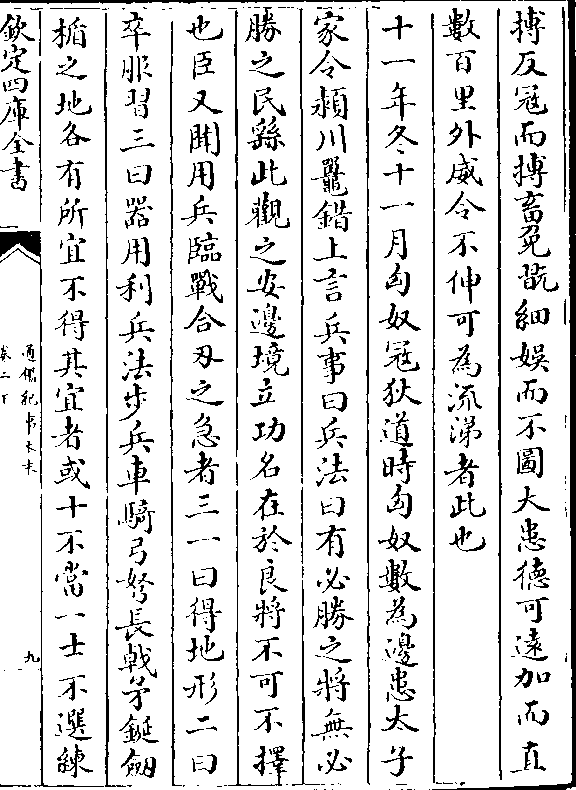 搏反冦而搏畜免翫細娱而不圖大患徳可逺加而直
數百里外威令不伸可為流涕者此也
十一年冬十一月匈奴冦狄道時匈奴數為邊患太子
家令潁川鼂錯上言兵事曰兵法曰有必勝之將無必
勝之民繇此觀之安邊境立功名在於良將不可不擇
也臣又聞用兵臨戰合刃之急者三一曰得地形二曰
卒服習三曰器用利兵法步兵車騎弓弩長戟矛鋋劔
楯之地各有所宜不得其宜者或十不當一士不選練
欽定四庫全書
通鑑紀事本末
卷二下
九